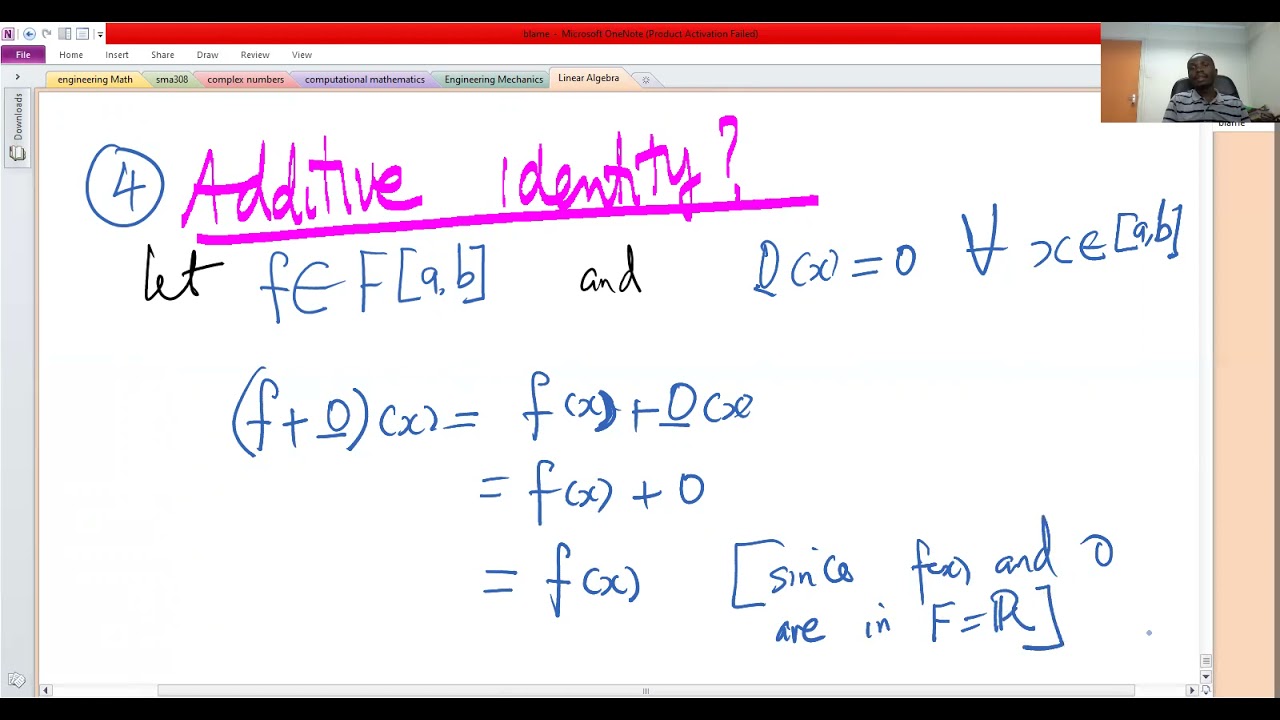 blame - Microsoft OneNote (Product Activation Failed)
File Home Insert Share Draw Review View
engineering Math sma308 complex numbers computational mathematics Engineering Mechanics Linear Algebra
Downloads
blame
④ Additive identity?
let f∈F[a,b] and 0̲(x) = 0 ∀ x∈[a,b]
(f+0̲)(x) = f(x)+0̲(x)
= f(x) + 0
= f(x) [since f(x) and 0
are in F=ℝ]